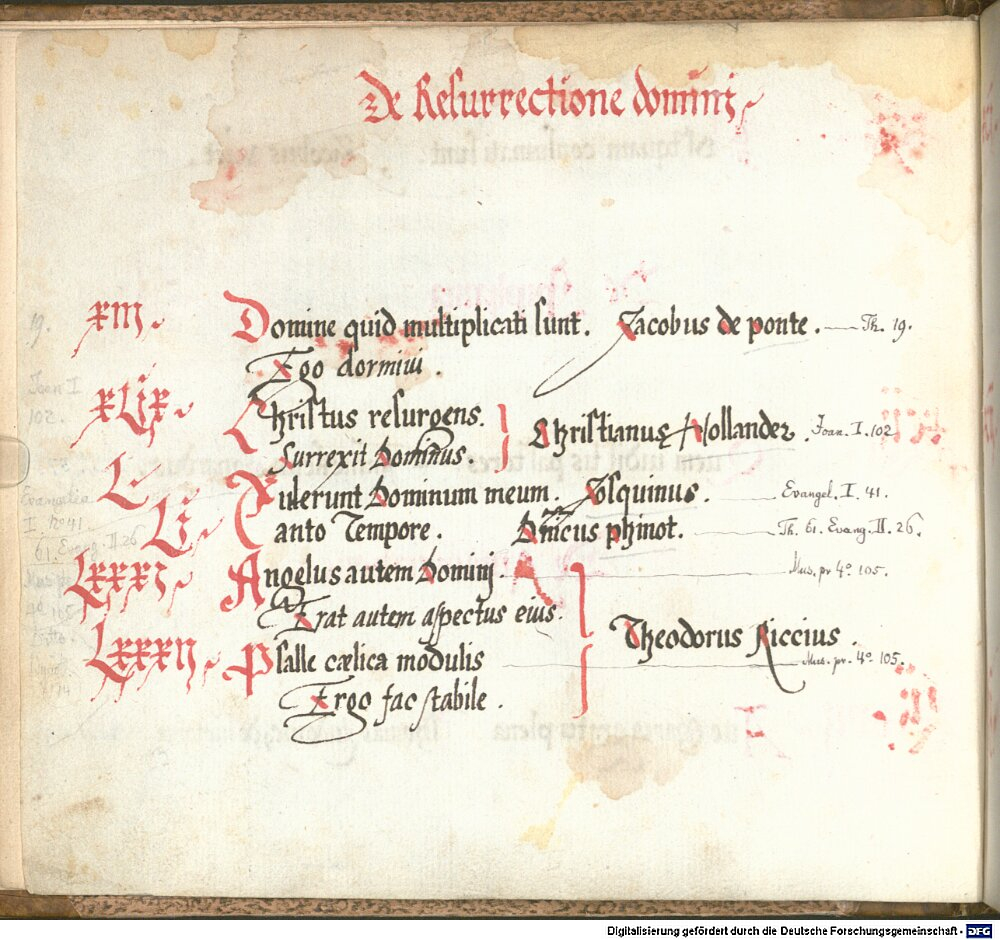 De Resurrectione domini
XIII. Domine quid multiplicati sunt. Jacobus de ponte. Th. 19.
19.
Ego dormivi.
Joan I
XLIX. Christus resurgens. Christianus Hollander. Joan. I. 102
102.
Surrexit Dominus.
L Tulerunt Dominum meum. Josquinus. Evangel. I. 41.
Evangelia
I Nº 41
LI. Canto Tempore. Dnicus phinot. Th. 61. Evang. II. 26.
61. Evang. II 26
LXXXI Angelus autem Dominj. Mus. pr. 4º 105.
Erat autem aspectus eius.
Theodorus Riccius.
LXXXII. Psalle cælica modulis Mus. pr. 4º 105.
Ergo fac stabile.
Digitalisierung gefördert durch die Deutsche Forschungsgemeinschaft - DFG